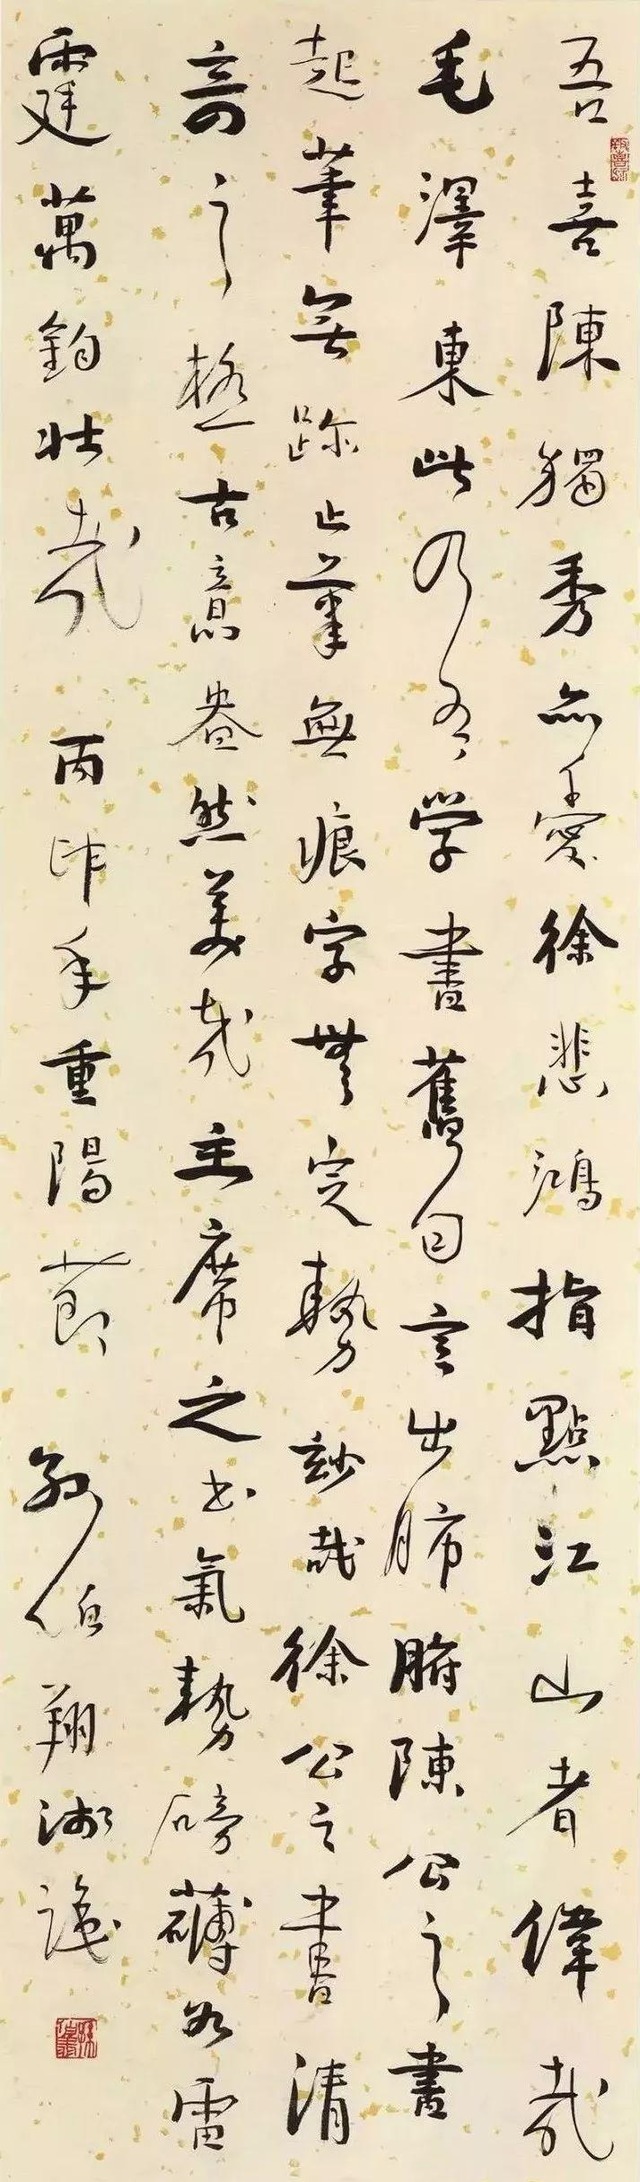 吾喜陳獨秀亦愛徐悲鴻指點江山者偉哉
毛澤東此乃学書舊句言出肺腑陳公之書
起筆無跡止筆無痕字無定勢妙哉徐公之書清
奇之極古意盎然美哉主席之書氣勢磅礴如雷
霆萬鈞壯哉 丙年重陽節 孫伯翔識